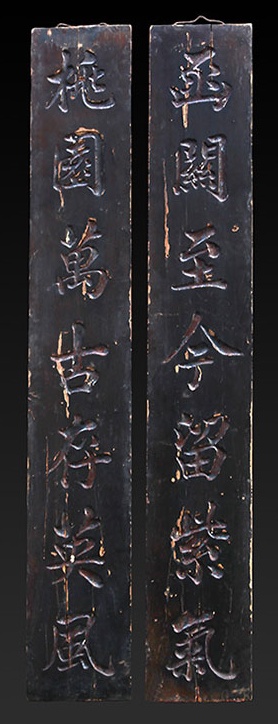 函關至今留紫氣
桃園萬古存英風